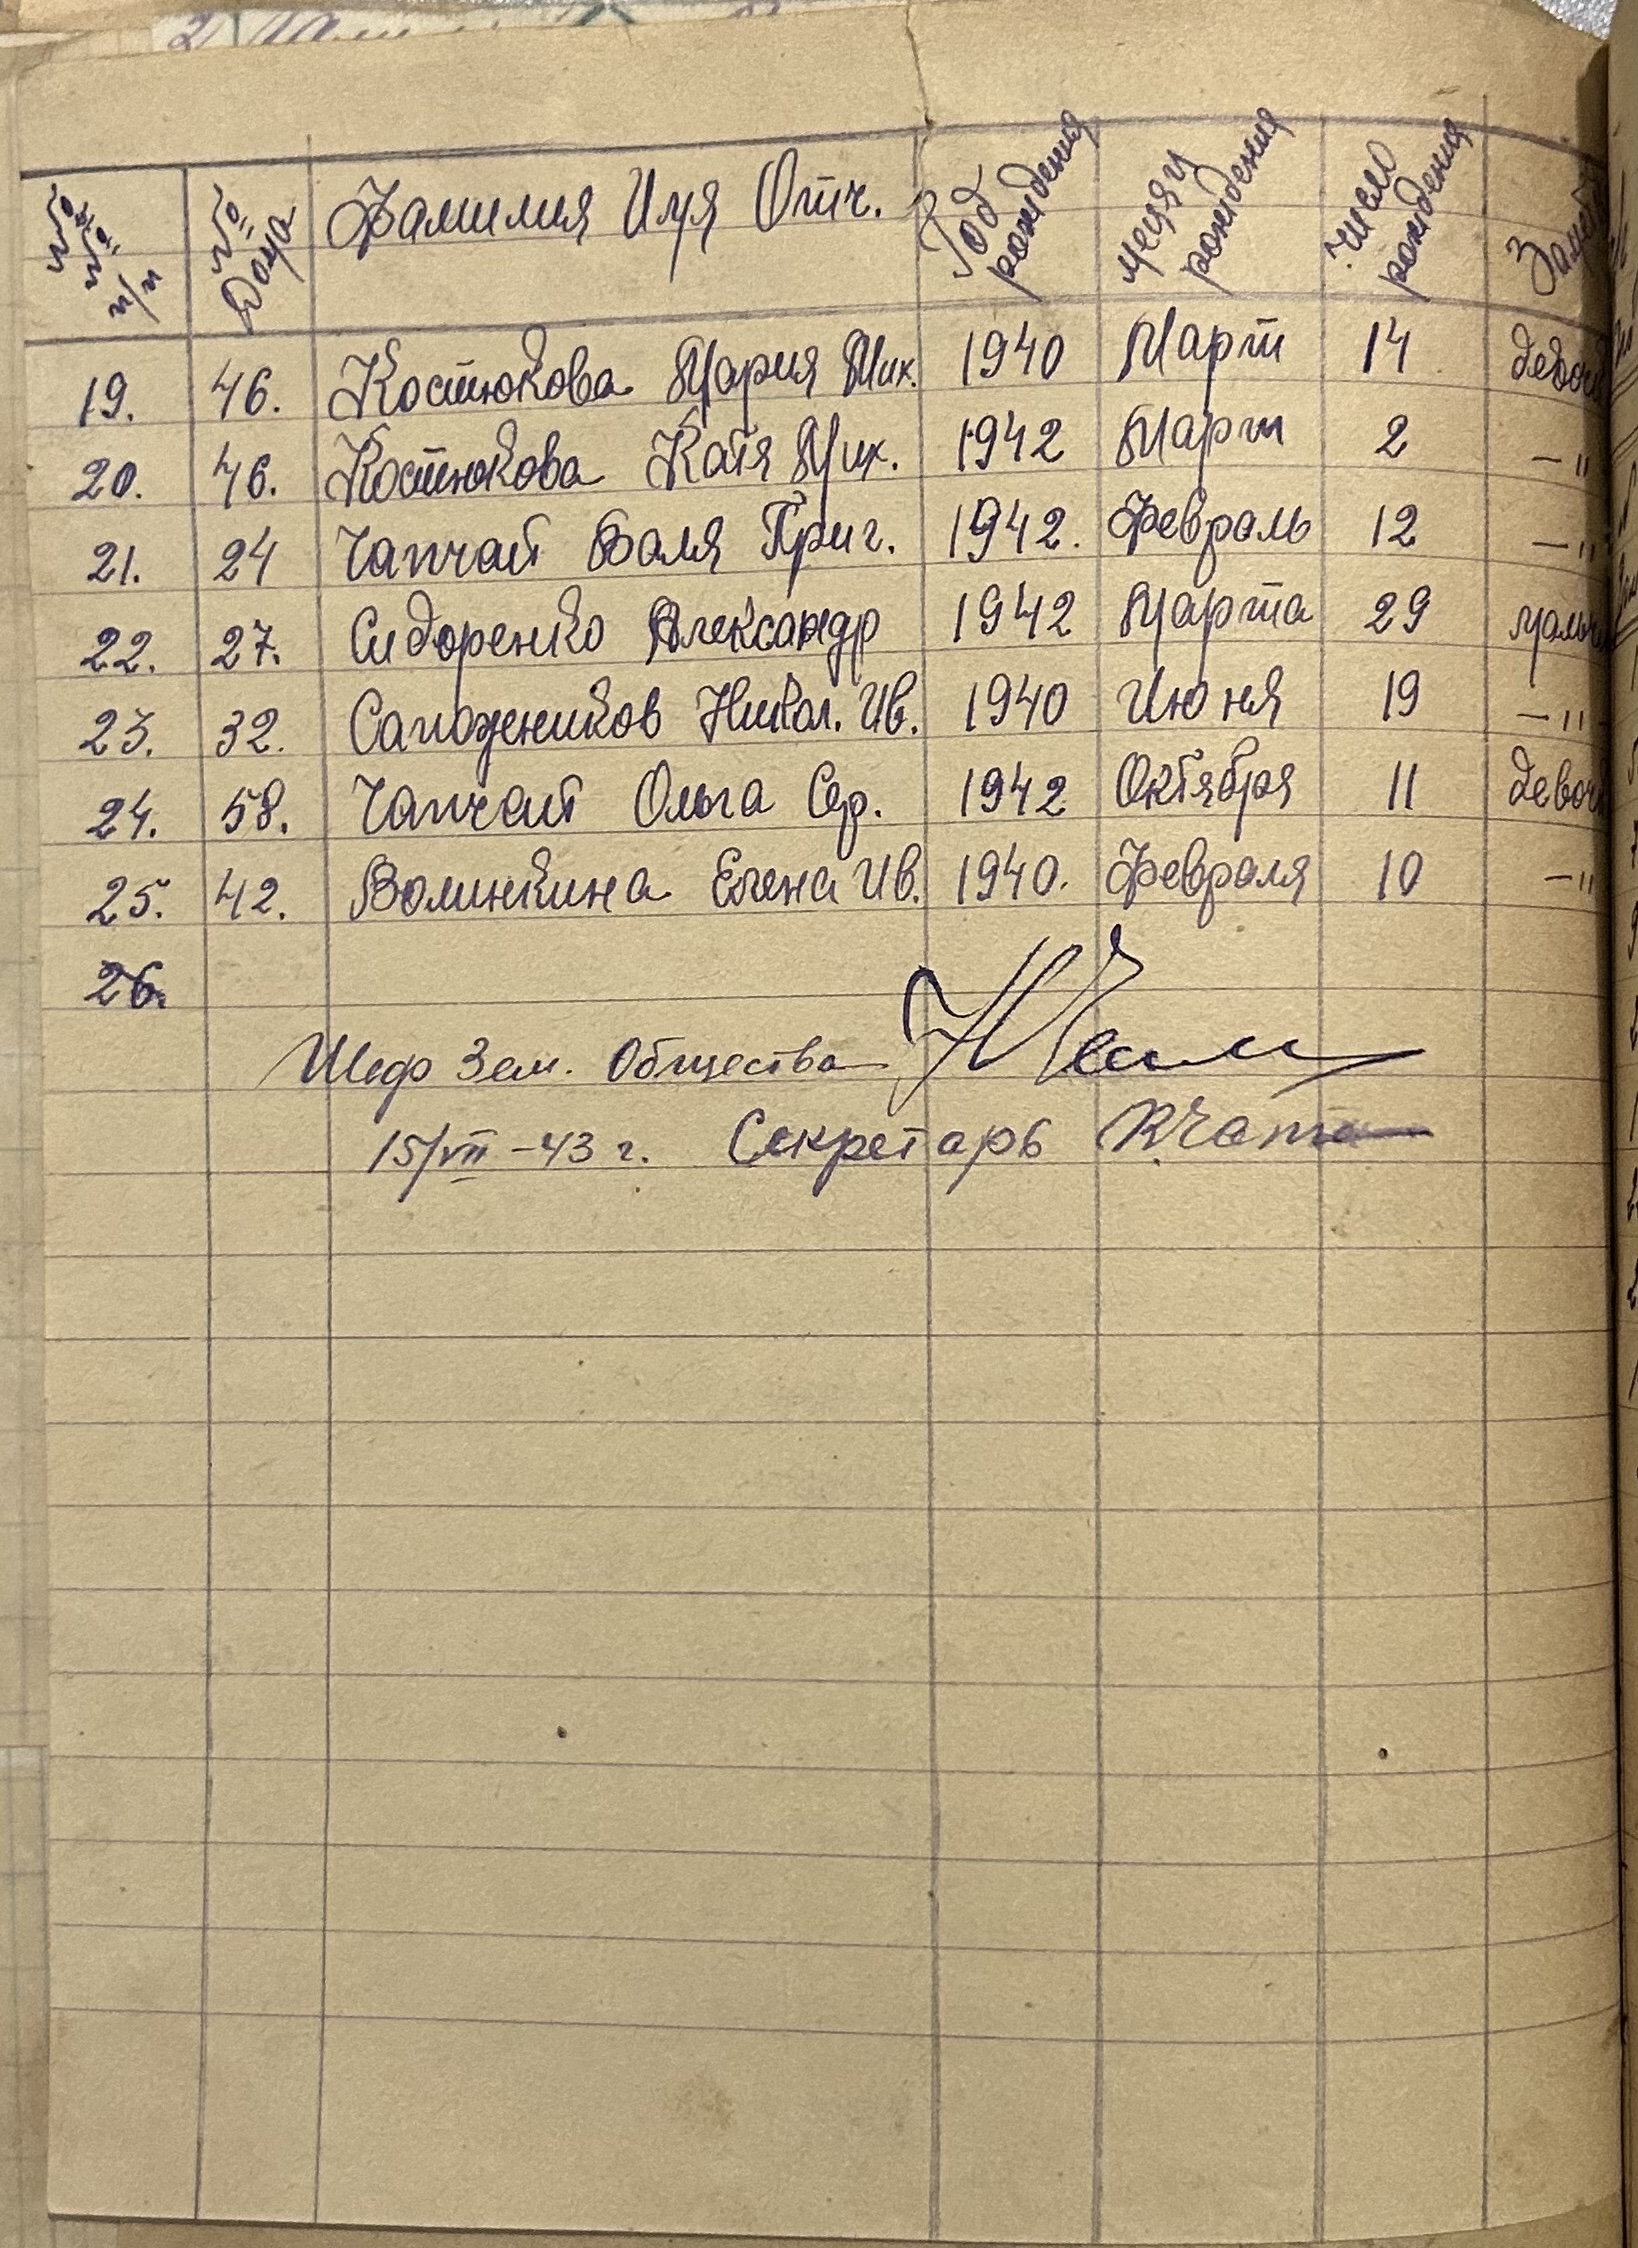 №№ п/п № Дома Фамилия Имя Отч. Год рождения месяц рождения Число рождения Замет
19. 46. Костюкова Мария Мих. 1940 Март 14 девоч
20. 46. Костюкова Катя Мих. 1942 Март 2 —"
21. 24 Чапчай Валя Григ. 1942. Февраль 12 —"
22. 27. Сидоренко Александр 1942 Марта 29 мальч
23. 32. Сапожников Никол. Ив. 1940 Июня 19 —"—
24. 58. Чапчай Ольга Сер. 1942 Октября 11 девоч
25. 42. Волинкина Елена Ив. 1940. Февраля 10 —"
26.
Шеф Зем. Общества
15/VII-43 г. Секретарь